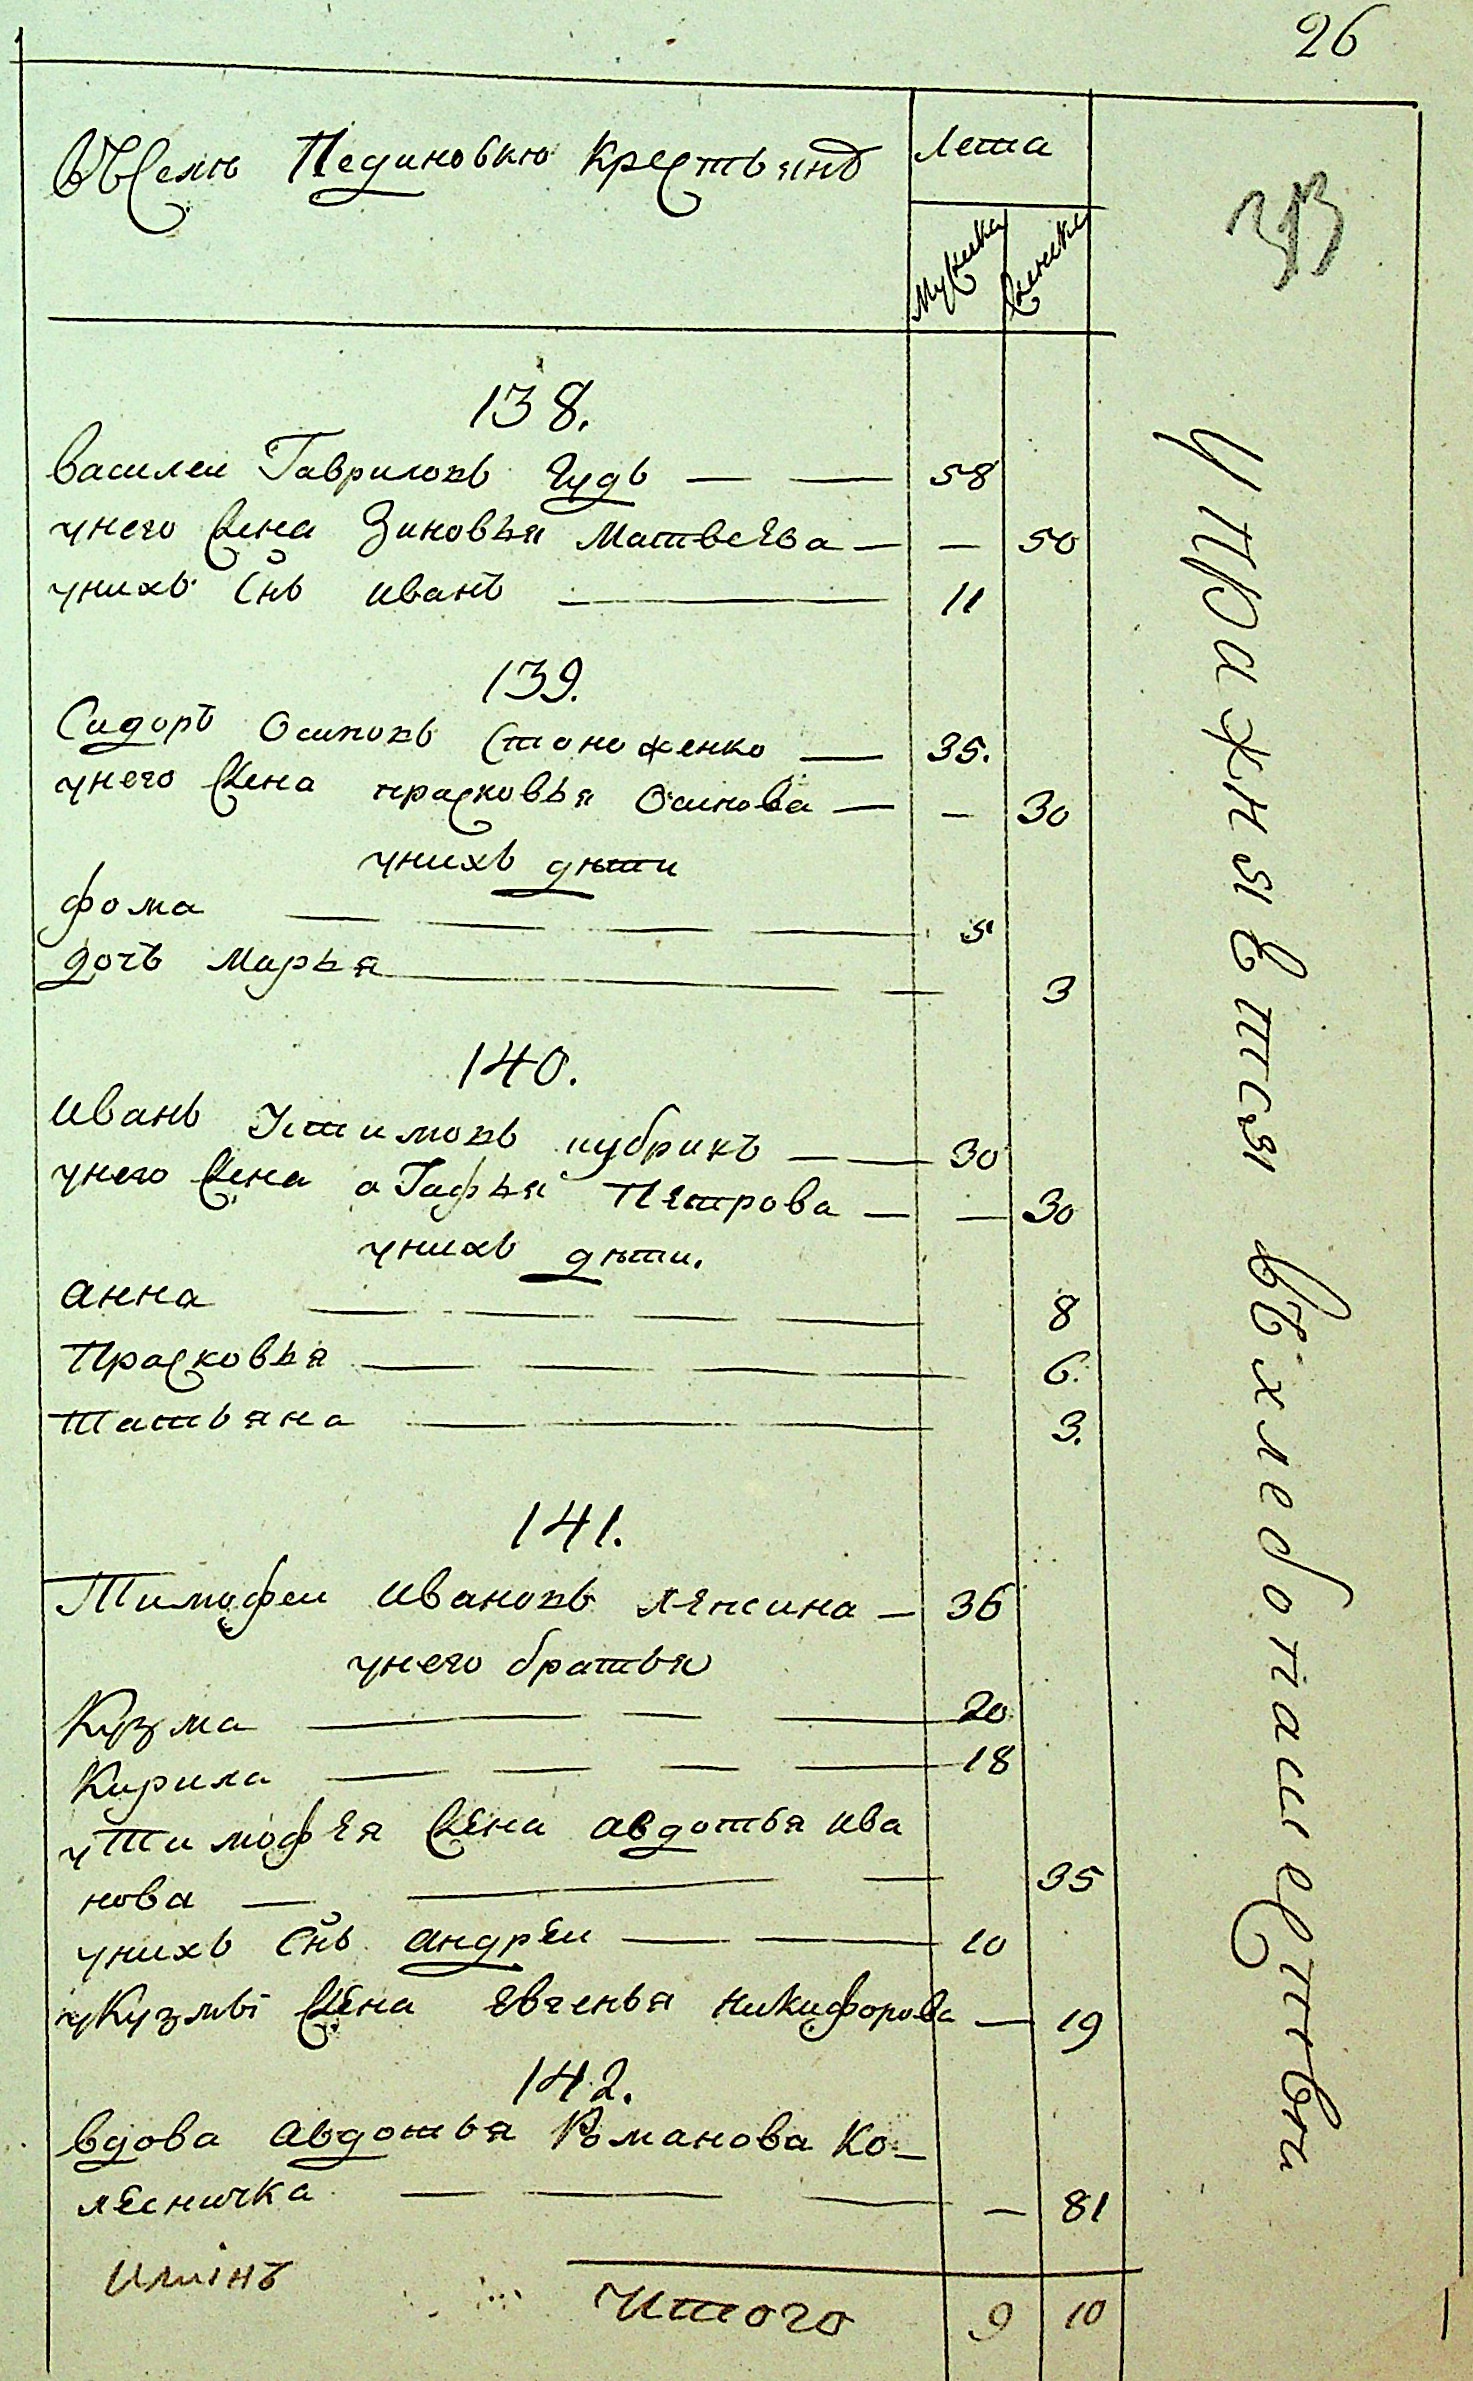 26
Въ селѣ Пединовкѣ крестьянъ
Лета
Мужска
Женска
138.
василеи Гавриловъ Гудь — — 58
унего жена Зиновья Матвеева — — 50
унихъ Снъ иванъ — 11
139.
Сидоръ Осиповъ Стоноженко — 35.
унего жена прасковья Осипова — — 30
унихъ дѣти
фома — — — — 5
дочь Марья — — 3
140.
иванъ Устимовъ цубрикъ — — 30
унего жена аГафья Петрова — — 30
унихъ дѣти.
анна — — — — 8
Прасковья — — — — 6.
Татьяна — — 3.
141.
Тимофеи ивановъ — 36
унего братья
Кузма — — — 20
Кирила — — — — 18
уТимофея жена авдотья ива
нова — — — 35
унихъ Снъ андреи — — 10
уКузмы жена евгенья никифорова — 19
142.
вдова авдотья Романова Ко-
лесничка — — — — 81
Итого 9 10
упражняется въ хлебопашествѣ